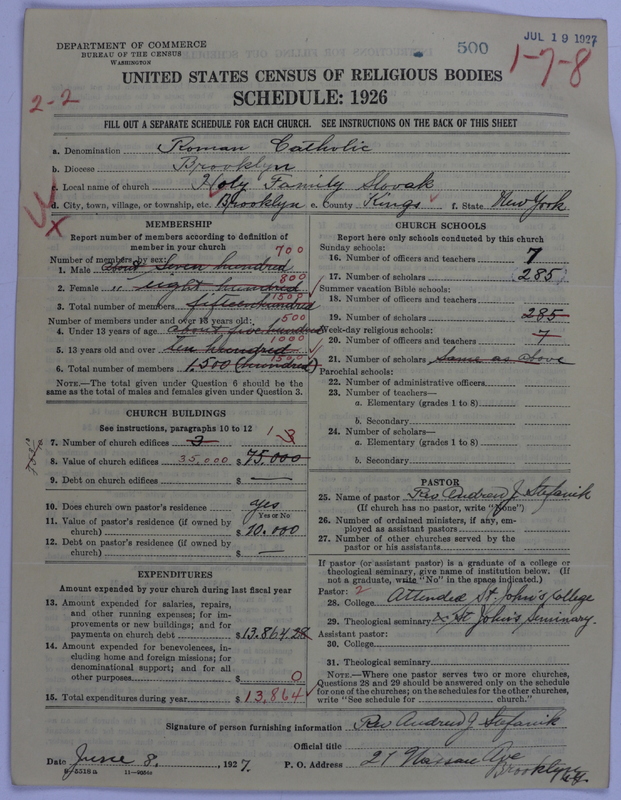 DEPARTMENT OF COMMERCE
BUREAU OF THE CENSUS
WASHINGTON
500
JUL 19 1927
1-7-8
2-2
UNITED STATES CENSUS OF RELIGIOUS BODIES
SCHEDULE: 1926
FILL OUT A SEPARATE SCHEDULE FOR EACH CHURCH. SEE INSTRUCTIONS ON THE BACK OF THIS SHEET
a. Denomination Roman Catholic
b. Diocese Brooklyn
c. Local name of church Holy Family Slovak
d. City, town, village, or township, etc. Brooklyn e. County Kings f. State New York
MEMBERSHIP
Report number of members according to definition of
member in your church
Number of members by sex:
700
1. Male about Seven hundred
800
2. Female " eight hundred
1500
3. Total number of members fifteen hundred
Number of members under and over 13 years old:
500
4. Under 13 years of age about five hundred
1000
5. 13 years old and over ten hundred
1500
6. Total number of members 1.500 (hundred)
NOTE.—The total given under Question 6 should be the
same as the total of males and females given under Question 3.
CHURCH BUILDINGS
See instructions, paragraphs 10 to 12
7. Number of church edifices 3 1 3
8. Value of church edifices 35,000 $ 75.000
9. Debt on church edifices $ —
10. Does church own pastor's residence yes
Yes or No
11. Value of pastor's residence (if owned by
church) $ 20.000
12. Debt on pastor's residence (if owned by
church) $ —
EXPENDITURES
Amount expended by your church during last fiscal year
13. Amount expended for salaries, repairs,
and other running expenses; for im-
provements or new buildings; and for
payments on church debt $ 13.864.28
14. Amount expended for benevolences, in-
cluding home and foreign missions; for
denominational support; and for all
other purposes $ 0
15. Total expenditures during year $ 13,864
CHURCH SCHOOLS
Report here only schools conducted by this church
Sunday schools:
16. Number of officers and teachers 7
17. Number of scholars (285)
Summer vacation Bible schools:
18. Number of officers and teachers
19. Number of scholars 285
Week-day religious schools:
20. Number of officers and teachers 7
21. Number of scholars same as above
Parochial schools:
22. Number of administrative officers
23. Number of teachers—
a. Elementary (grades 1 to 8)
b. Secondary
24. Number of scholars—
a. Elementary (grades 1 to 8)
b. Secondary
PASTOR
25. Name of pastor Rev Andrew J Stefanik
(If church has no pastor, write "None")
26. Number of ordained ministers, if any, em-
ployed as assistant pastors
27. Number of other churches served by the
pastor or his assistants
If pastor (or assistant pastor) is a graduate of a college or
theological seminary, give name of institution below. (If
not a graduate, write "No" in the space indicated.)
Pastor: 2
28. College Attended St. John's College
29. Theological seminary & St John's Seminary.
Assistant pastor:
30. College
31. Theological seminary
NOTE.—Where one pastor serves two or more churches,
Questions 28 and 29 should be answered only on the schedule
for one of the churches; on the schedules for the other churches,
write "See schedule for church."
Signature of person furnishing information Rev Andrew J Stefanik
Official title
Date June 8, 1927. P. O. Address 21 Nassau Ave
Brooklyn N.Y.